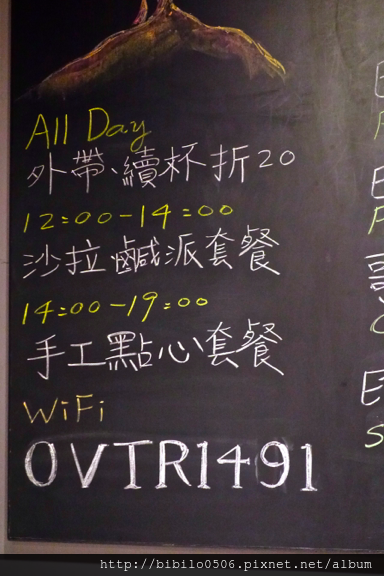 All Day
外帶、續杯折20
12:00-14:00
沙拉鹹派套餐
14:00-19:00
手工點心套餐
WiFi
OVTR1491
http://bibilo0506.pixnet.net/album